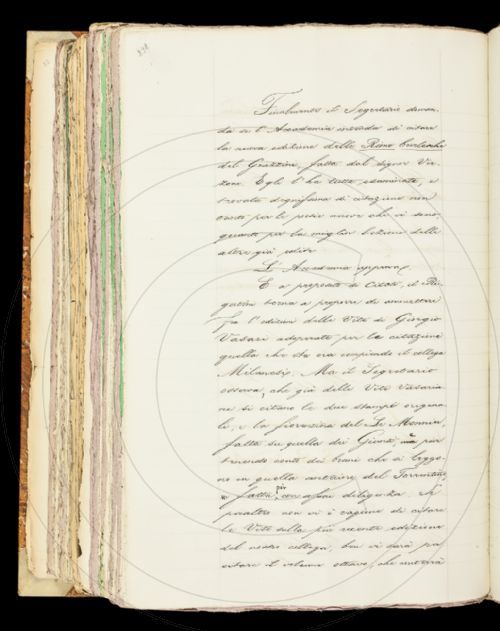 Finalmente il Segretario doman-
da se l'Accademia intenda di citare
la nuova edizione delle Rime burlesche
del Grazzini, fatta dal signor Ver-
zone. Egli l'ha tutta esaminata, e
trovata degnissima di citazione non
tanto per le poesie nuove che vi sono,
quanto per la miglior lezione delle
altre già edite.
L'Accademia approva.
E a proposito di citare, il
torna a proporre di ammettere
fra l'edizioni delle Vite di Giorgio
Vasari adoprate per la citazione
quella che sta ora compiendo il collega
Milanesi. Ma il Segretario
osserva, che già delle Vite Vasaria-
ne si citano le due stampe origina-
li, e la fiorentina del Le Monnier,
fatta su quella dei Giunti, ma pur
tenendo conto dei brani che si leggo-
no in quella anteriore del Torrentino,
e fatta con assai diligenza.
peraltro non vi è ragione di citare
le Vite sulla più recente edizione
del nostro collega, ben vi sarà per
citare il volume ottavo, che conterrà